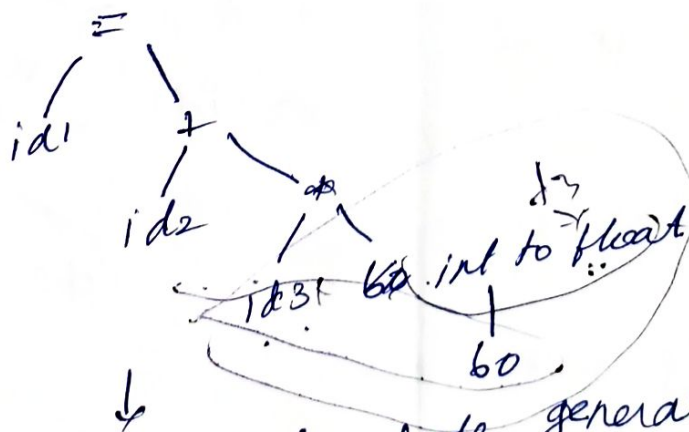 =
id1 +
id2 *
id3 int to float
60
genera